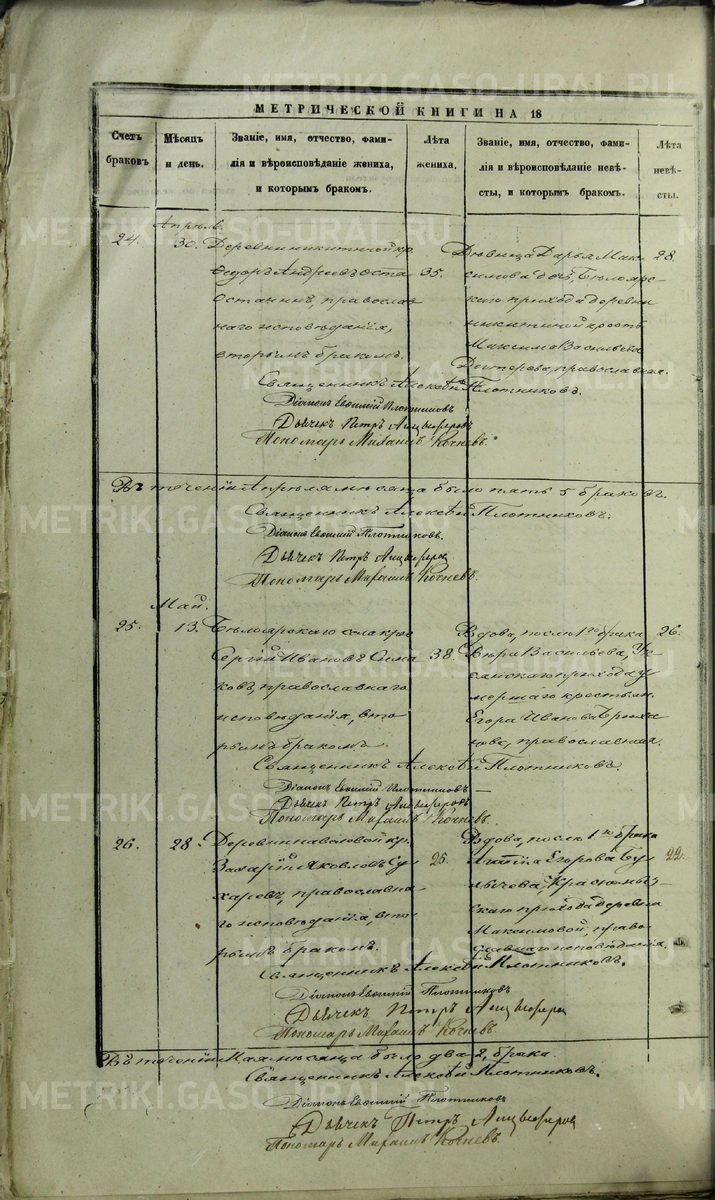 МЕТРИЧЕСКОЙ КНИГИ НА 18
Счетъ браковъ.
Мѣсяцъ и день.
Званіе, имя, отчество, фами-
лія и вѣроисповѣданіе жениха,
и которымъ бракомъ.
Лѣта жениха.
Званіе, имя, отчество, фами-
лія и вѣроисповѣданіе невѣ-
сты, и которымъ бракомъ.
Лѣта невѣ-
сты.
Апрѣль.
24. 30. Деревни Никитиной кр.
Ѳедоръ Андреевъ Оста 35.
Останинъ, православ
наго исповѣданія,
вторымъ бракомъ.
Дѣвица Дарья Мак- 28.
симова дочь, Бѣлоярс-
каго прихода деревни
Никитиной крест.
Максима Васильева
православная.
Священникъ Алексѣй Плотниковъ.
Діаконъ Евсевій Плотниковъ
Дьячекъ Петръ
Пономарь Михаилъ Кочневъ.
Въ теченіи Апрѣля мѣсяца было пять 5 браковъ.
Священникъ Алексѣй Плотниковъ.
Діаконъ Евсевій Плотниковъ.
Дьячекъ Петръ
Пономарь Михаилъ Кочневъ.
Май.
25. 13. Бѣлоярскаго села крес
Сергій Ивановъ Сима 38.
ковъ, православнаго
исповѣданія, вто-
рымъ бракомъ.
Вдова, послѣ 1го брака 26.
Вѣра Васильева,
прихода у
мершаго крестьян.
Егора Иванова
православная.
Священникъ Алексѣй Плотниковъ.
Діаконъ Евсевій Плотниковъ
Дьячекъ Петръ
Пономарь Михаилъ Кочневъ.
26. 28. Деревни кр.
Захарій Яковлевъ Су 26.
харевъ, православна-
го исповѣданія, вто-
рымъ бракомъ.
Вдова, послѣ 1го брака
Агапія Егорова Бу 22.
лычева,
скаго прихода деревни
Максимовой, право
славнаго исповѣданія.
Священникъ Алексѣй Плотниковъ.
Діаконъ Евсевій Плотниковъ
Дьячекъ Петръ
Пономарь Михаилъ Кочневъ
Въ теченіи Мая мѣсяца было два 2, брака.
Священникъ Алексѣй Плотниковъ.
Діаконъ Евсевій Плотниковъ
Дьячекъ Петръ
Пономарь Михаилъ Кочневъ
METRIKI.GASO-URAL.RU